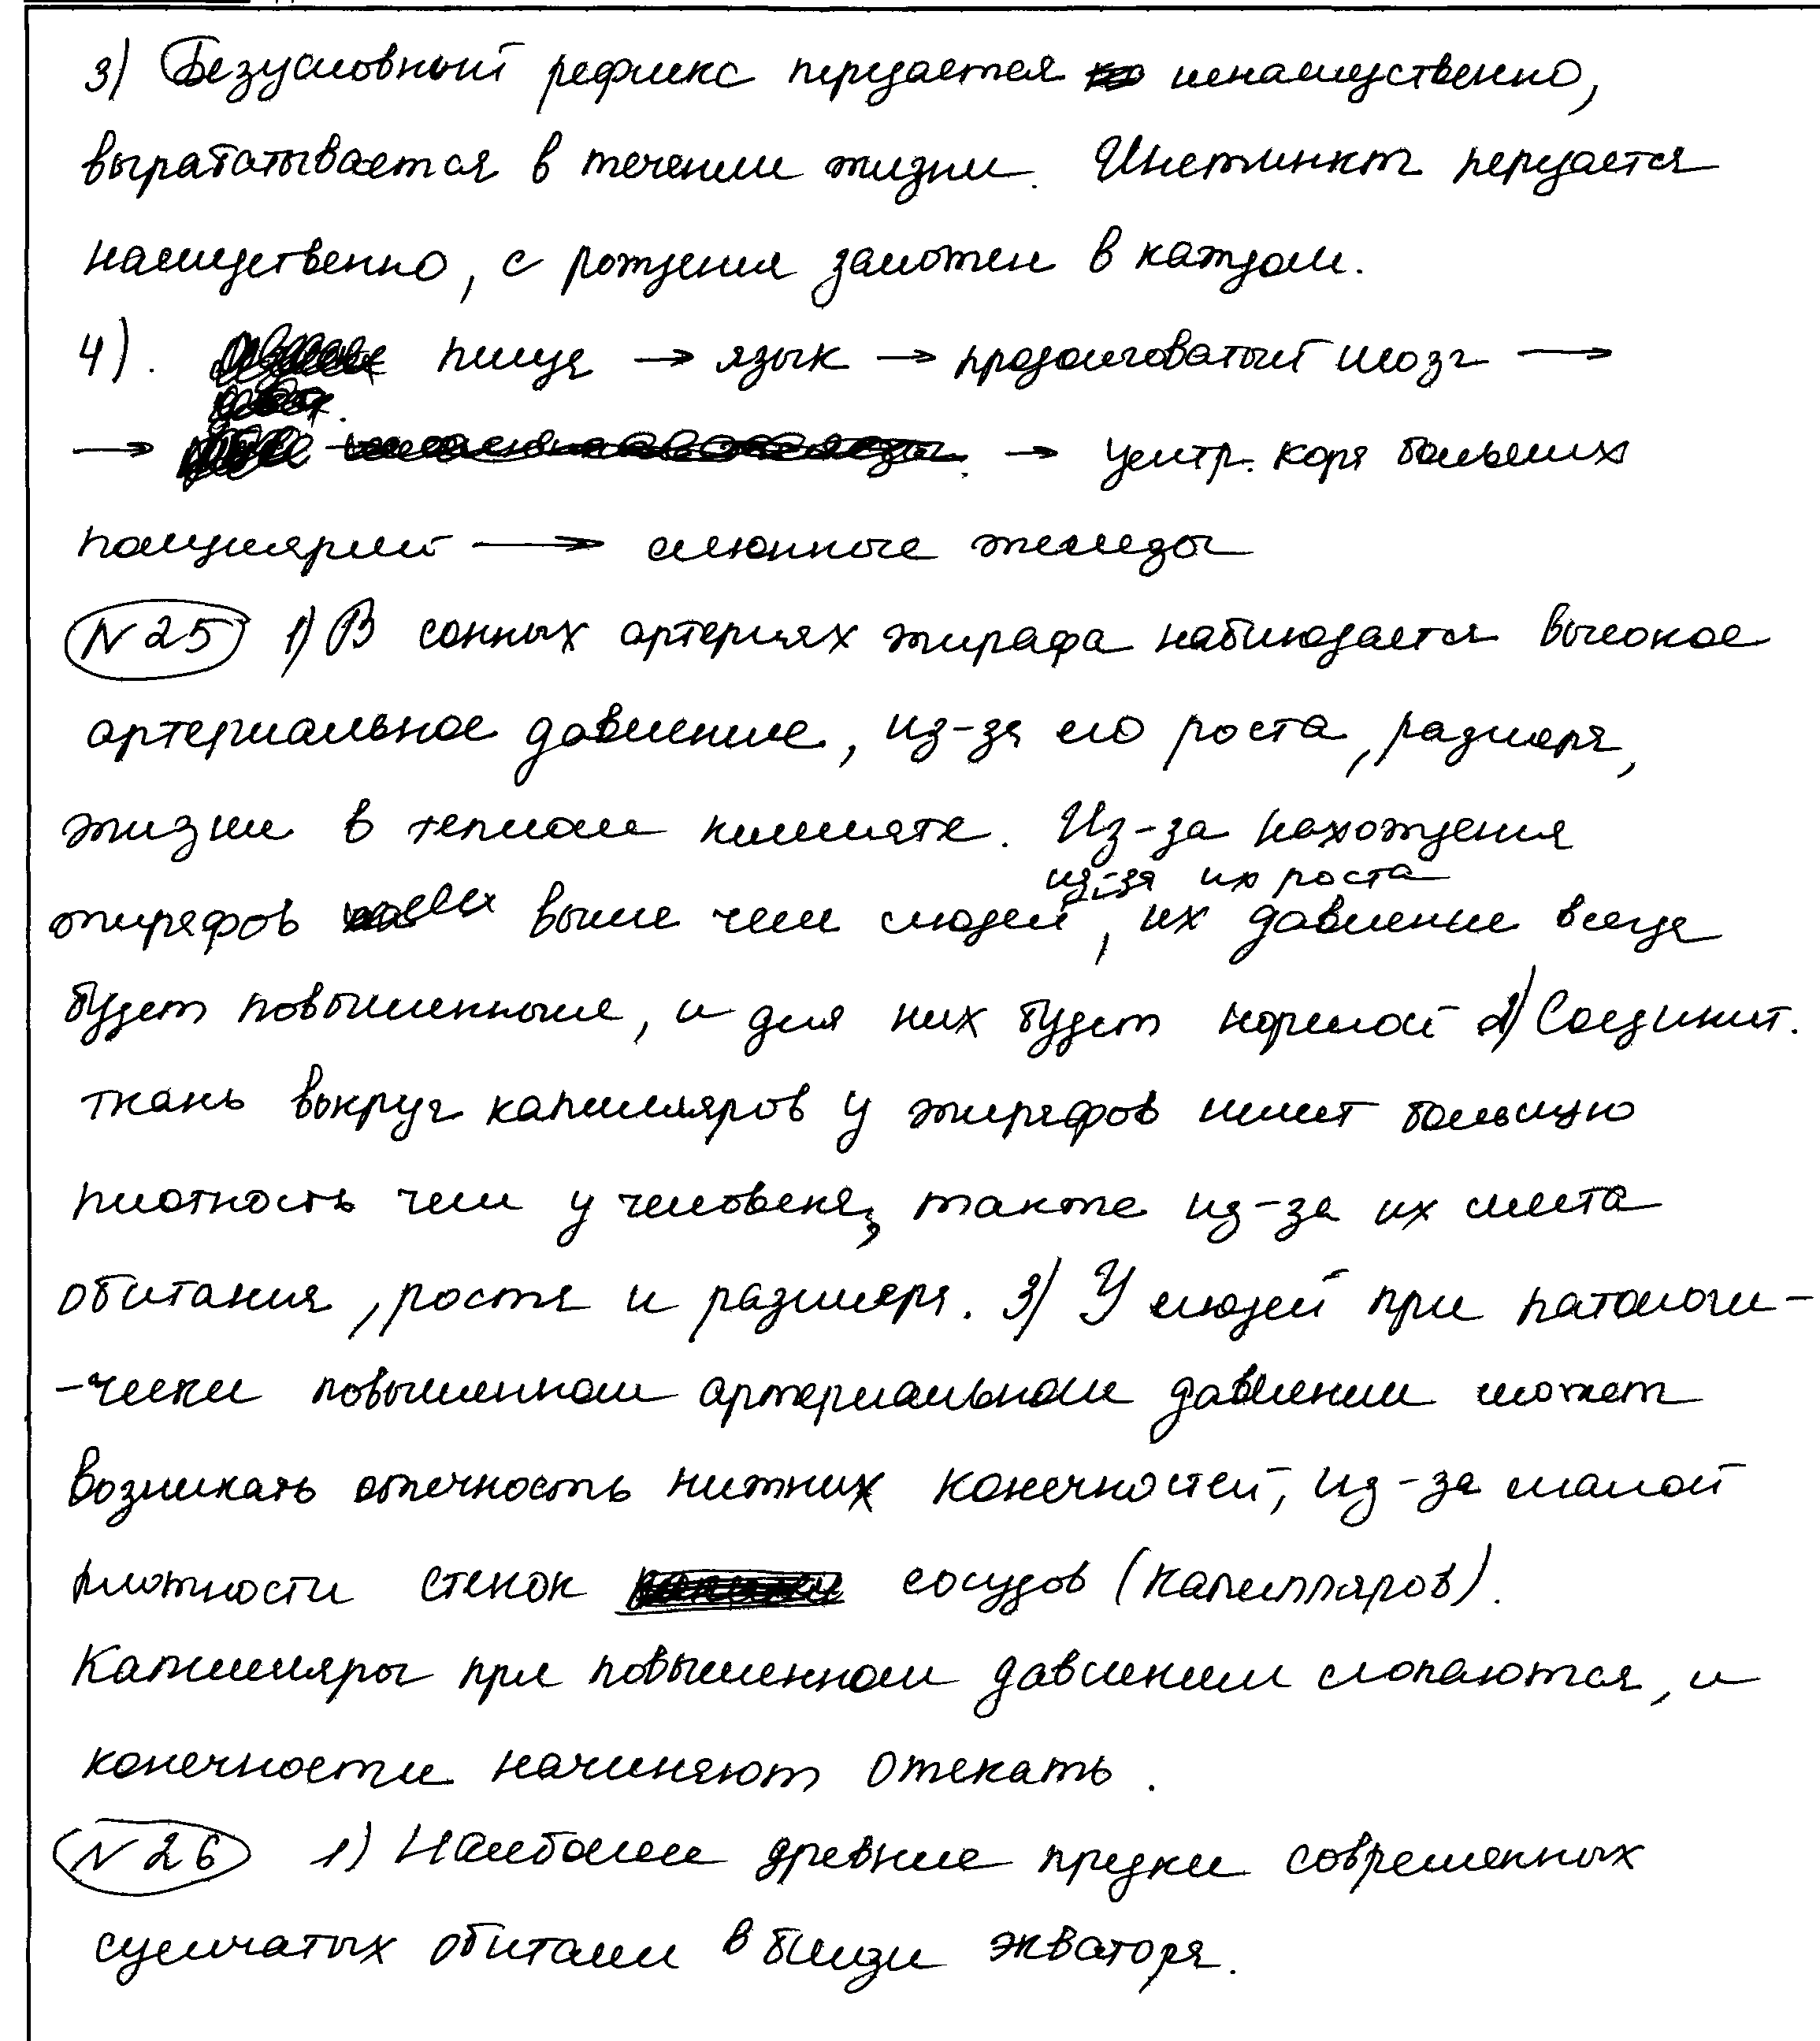 3) Безусловный рефлекс передается ненаследственно,
вырабатывается в течении жизни. Инстинкт передается
наследственно, с рождения заложен в каждом.
4). пища → язык → продолговатый мозг →
→ → центр. коря больших
полушарий → слюнные железы
N25 1) В сонных артериях жирафа наблюдается высокое
артериальное давление, из-за его роста, размера,
жизни в теплом климате. Из-за нахождения
из-за их роста
жирафов выше чем людей, их давление всегда
будет повышенным, и для них будет нормой 2) Соединит.
ткань вокруг капилляров у жирафов имеет большую
плотность чем у человека, также из-за их места
обитания, роста и размера. 3) У людей при патологи-
-чески повышенном артериальном давлении может
возникать отечность нижних конечностей, из-за малой
плотности стенок сосудов (капилляров).
Капилляры при повышенном давлении лопаются, и
конечности начинают отекать.
N26 1) Наиболее древние предки современных
сумчатых обитали в близи экватора.